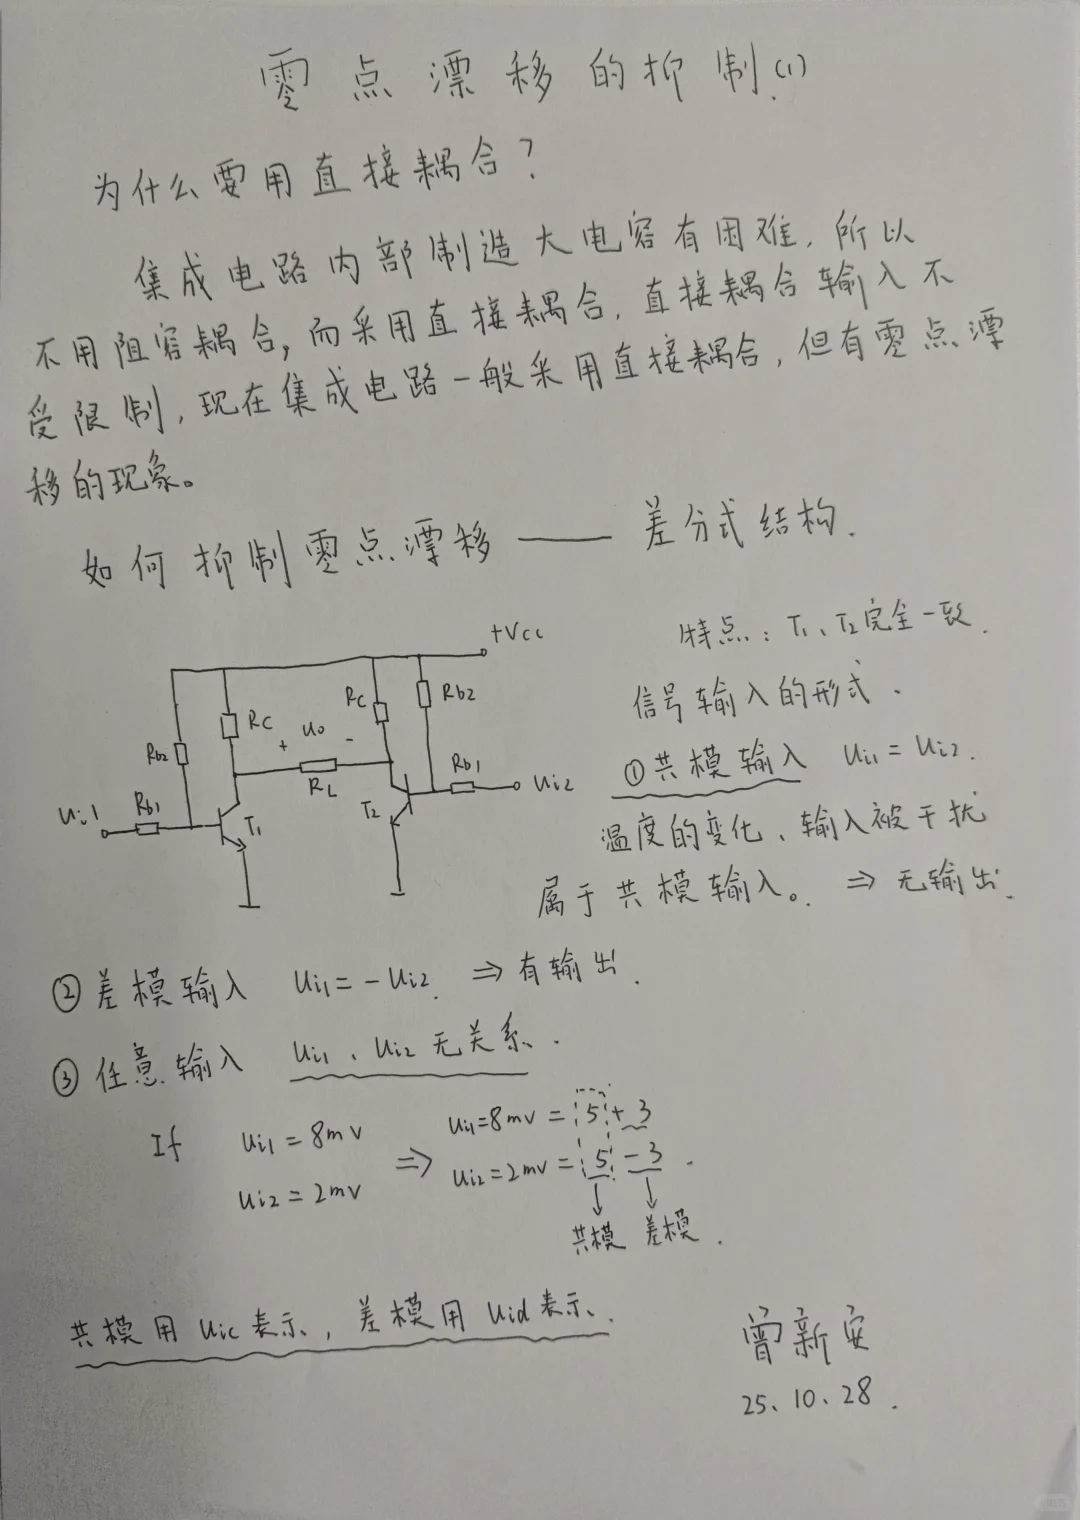 零点漂移的抑制(1)
为什么要用直接耦合?
集成电路内部制造大电容有困难,所以
不用阻容耦合,而采用直接耦合,直接耦合输入不
受限制,现在集成电路一般采用直接耦合,但有零点漂
移的现象。
如何抑制零点漂移——差分式结构.
特点:T1、T2完全一致.
信号输入的形式、
①共模输入 Ui1=Ui2.
温度的变化、输入被干扰
属于共模输入。⇒无输出.
+Vcc
Rb2
Rc
+ Uo -
Rc
Rb2
Ui1
Rb1
T1
RL
T2
Rb1
Ui2
②差模输入 Ui1=-Ui2. ⇒有输出.
③任意输入 Ui1、Ui2无关系.
If Ui1=8mV ⇒ Ui1=8mV=5+3
Ui2=2mV Ui2=2mV=5-3.
共模 差模.
共模用Uic表示,差模用Uid表示.
曾新安
25、10、28.